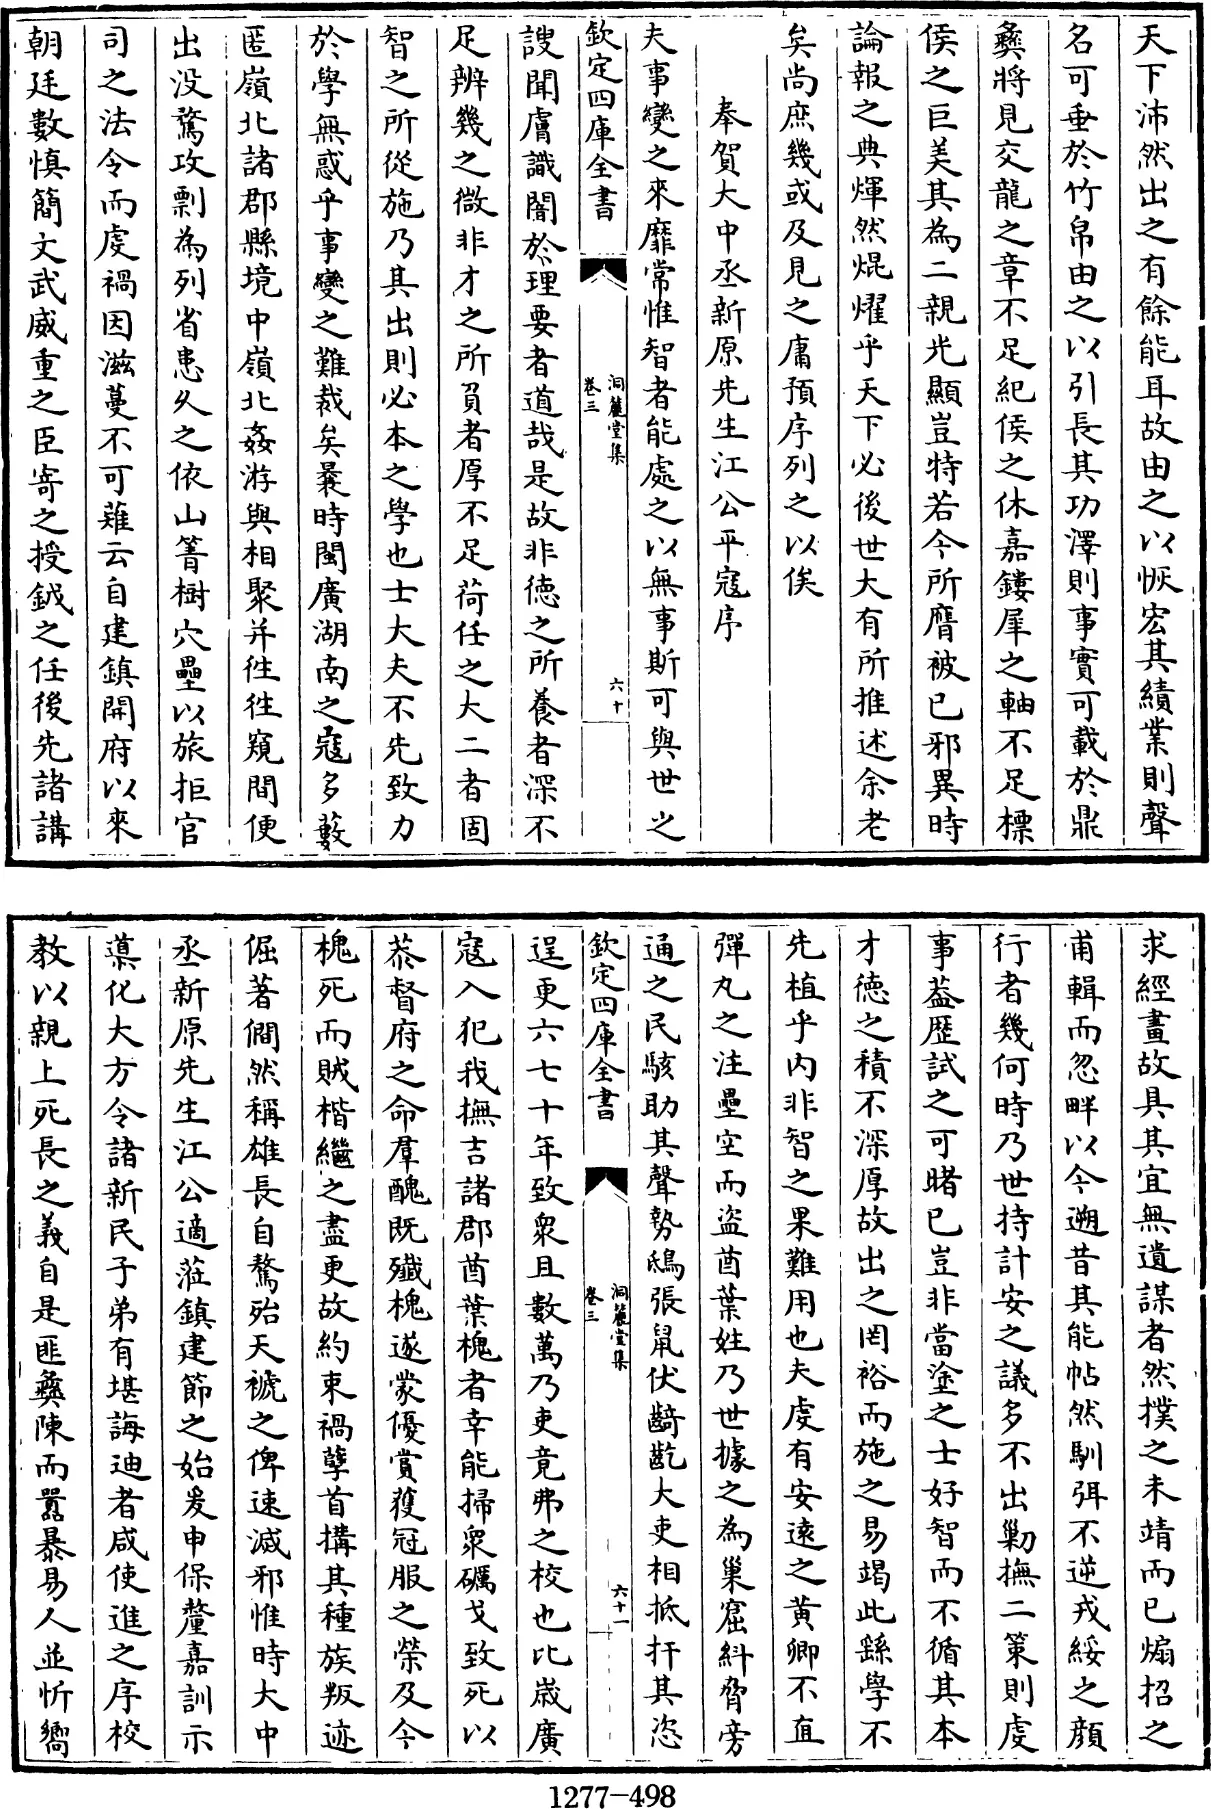 天下沛然出之有餘能耳故由之以恢宏其績業則聲
名可垂於竹帛由之以引長其功澤則事實可載於鼎
彝將見交龍之章不足紀侯之休嘉鏤犀之軸不足標
侯之巨美其為二親光顯豈特若今所膺被已邪異時
論報之典煇然焜燿乎天下必後世大有所推述余老
矣尚庶幾或及見之庸預序列之以俟
奉賀大中丞新原先生江公平寇序
夫事變之來靡常惟智者能處之以無事斯可與世之
欽定四庫全書
洞麓堂集
卷三
六十
謏聞膚識闇於理要者道哉是故非德之所養者深不
足辨幾之微非才之所負者厚不足荷任之大二者固
智之所從施乃其出則必本之學也士大夫不先致力
於學無惑乎事變之難裁矣曩時閩廣湖南之寇多藪
匿嶺北諸郡縣境中嶺北姦游與相聚并徃徃窺間便
出沒騖攻剽為列省患久之依山箐樹穴壘以旅拒官
司之法令而虔禍因滋蔓不可薙云自建鎮開府以來
朝廷數慎簡文武威重之臣寄之授鉞之任後先諸講
求經畫故具其宜無遺謀者然撲之未靖而已煽招之
甫輯而忽畔以今遡昔其能帖然馴弭不逆戎綏之顏
行者幾何時乃世持計安之議多不出勦撫二策則虔
事葢歷試之可睹已豈非當塗之士好智而不循其本
才德之積不深厚故出之罔裕而施之易竭此繇學不
先植乎内非智之果難用也夫虔有安遠之黄卿不直
彈丸之注壘空而盗酋葉姓乃世據之為巢窟糾脅旁
通之民駭助其聲勢鴟張鼠伏齮齕大吏相抵扞其恣
欽定四庫全書
洞麓堂集
卷三
六十一
逞更六七十年致衆且數萬乃吏竟弗之校也比歲廣
寇入犯我撫吉諸郡酋葉槐者幸能掃衆礪戈致死以
䓁督府之命羣醜既殱槐遂蒙優賞獲冠服之榮及今
槐死而賊楷繼之盡更故約束禍孽首搆其種族叛迹
倔著僩然稱雄長自驁殆天禠之俾速滅邪惟時大中
丞新原先生江公適涖鎮建節之始爰申保釐嘉訓示
㬥化大方令諸新民子弟有堪誨迪者咸使進之序校
教以親上死長之義自是匪彝陳而嚚暴易人並忻嚮
1277-498